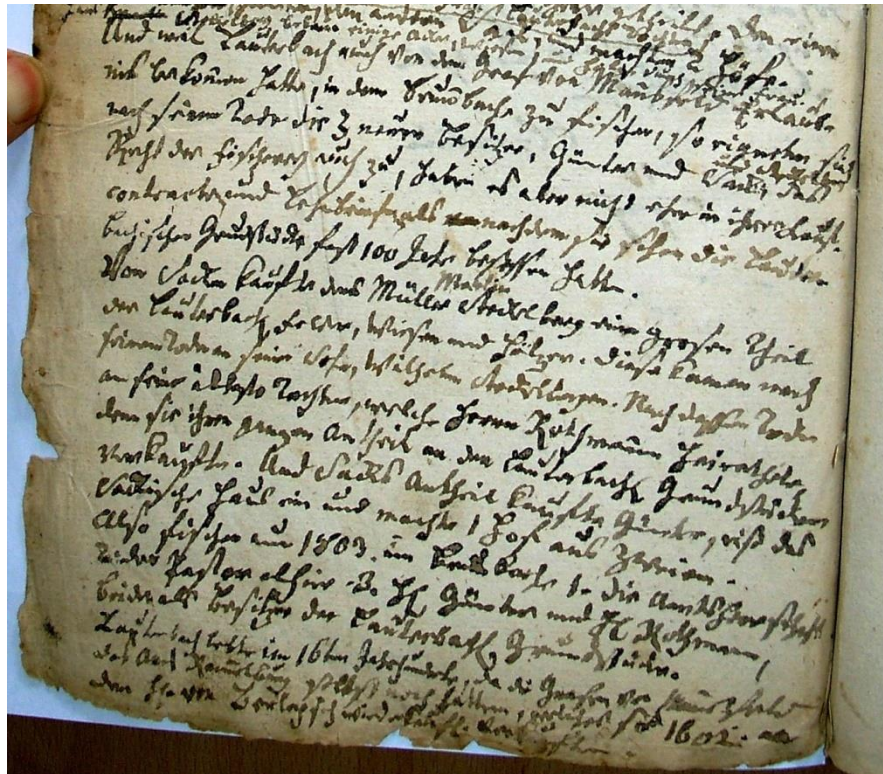 getheilt. Den einen
einige Acker, Wiesen und machten 2 Höfe.
Und weil Lauterbach auch von dem Graf von Mansfeld Erlaub-
niß bekommen hatte, in dem Bache zu fischen, so eigneten sich
nach seinem Tode die 3 neuen Besitzer, Günter und Sack, das
Recht der Fischerey auch zu, haben es aber nicht eher in ihre Kauf-
contracte und Lehnbriefe als nachdem sie schon die Lauter-
bachischen Grundstücke fast 100 Jahr besessen hatten.
Von Sacken kaufte das Müller Martin Stedelberg einen grosen Theil
der Lauterbach. Felder, Wiesen und Hölzer. Diese kamen nach
seinem Tode an seinen Sohn, Wilhelm Stedelbergen. Nach dessen Tode
an seine älteste Tochter, welche Herrn Rothmann heirathete,
dem sie ihren ganzen Antheil an den Lauterbach. Grundstücken
verkaufte. Und Sacks Antheil kaufte Günter, riß das
Sackische Haus ein und machte 1 Hof aus zweien.
Also fischen nun 1803 im Bache 1. die Amtsherrschaft
2. der Pastor alhier 3. H. Günter und H. Rothmann,
beide als Besitzer der Lauterbach. Grundstücke.
Lauterbach lebte im 16ten Jahrhunderte, da die Grafen von Mansfeld
das Amt selbst noch hatten, welches 1602
den H. von Berlepsch wiederkäufl.